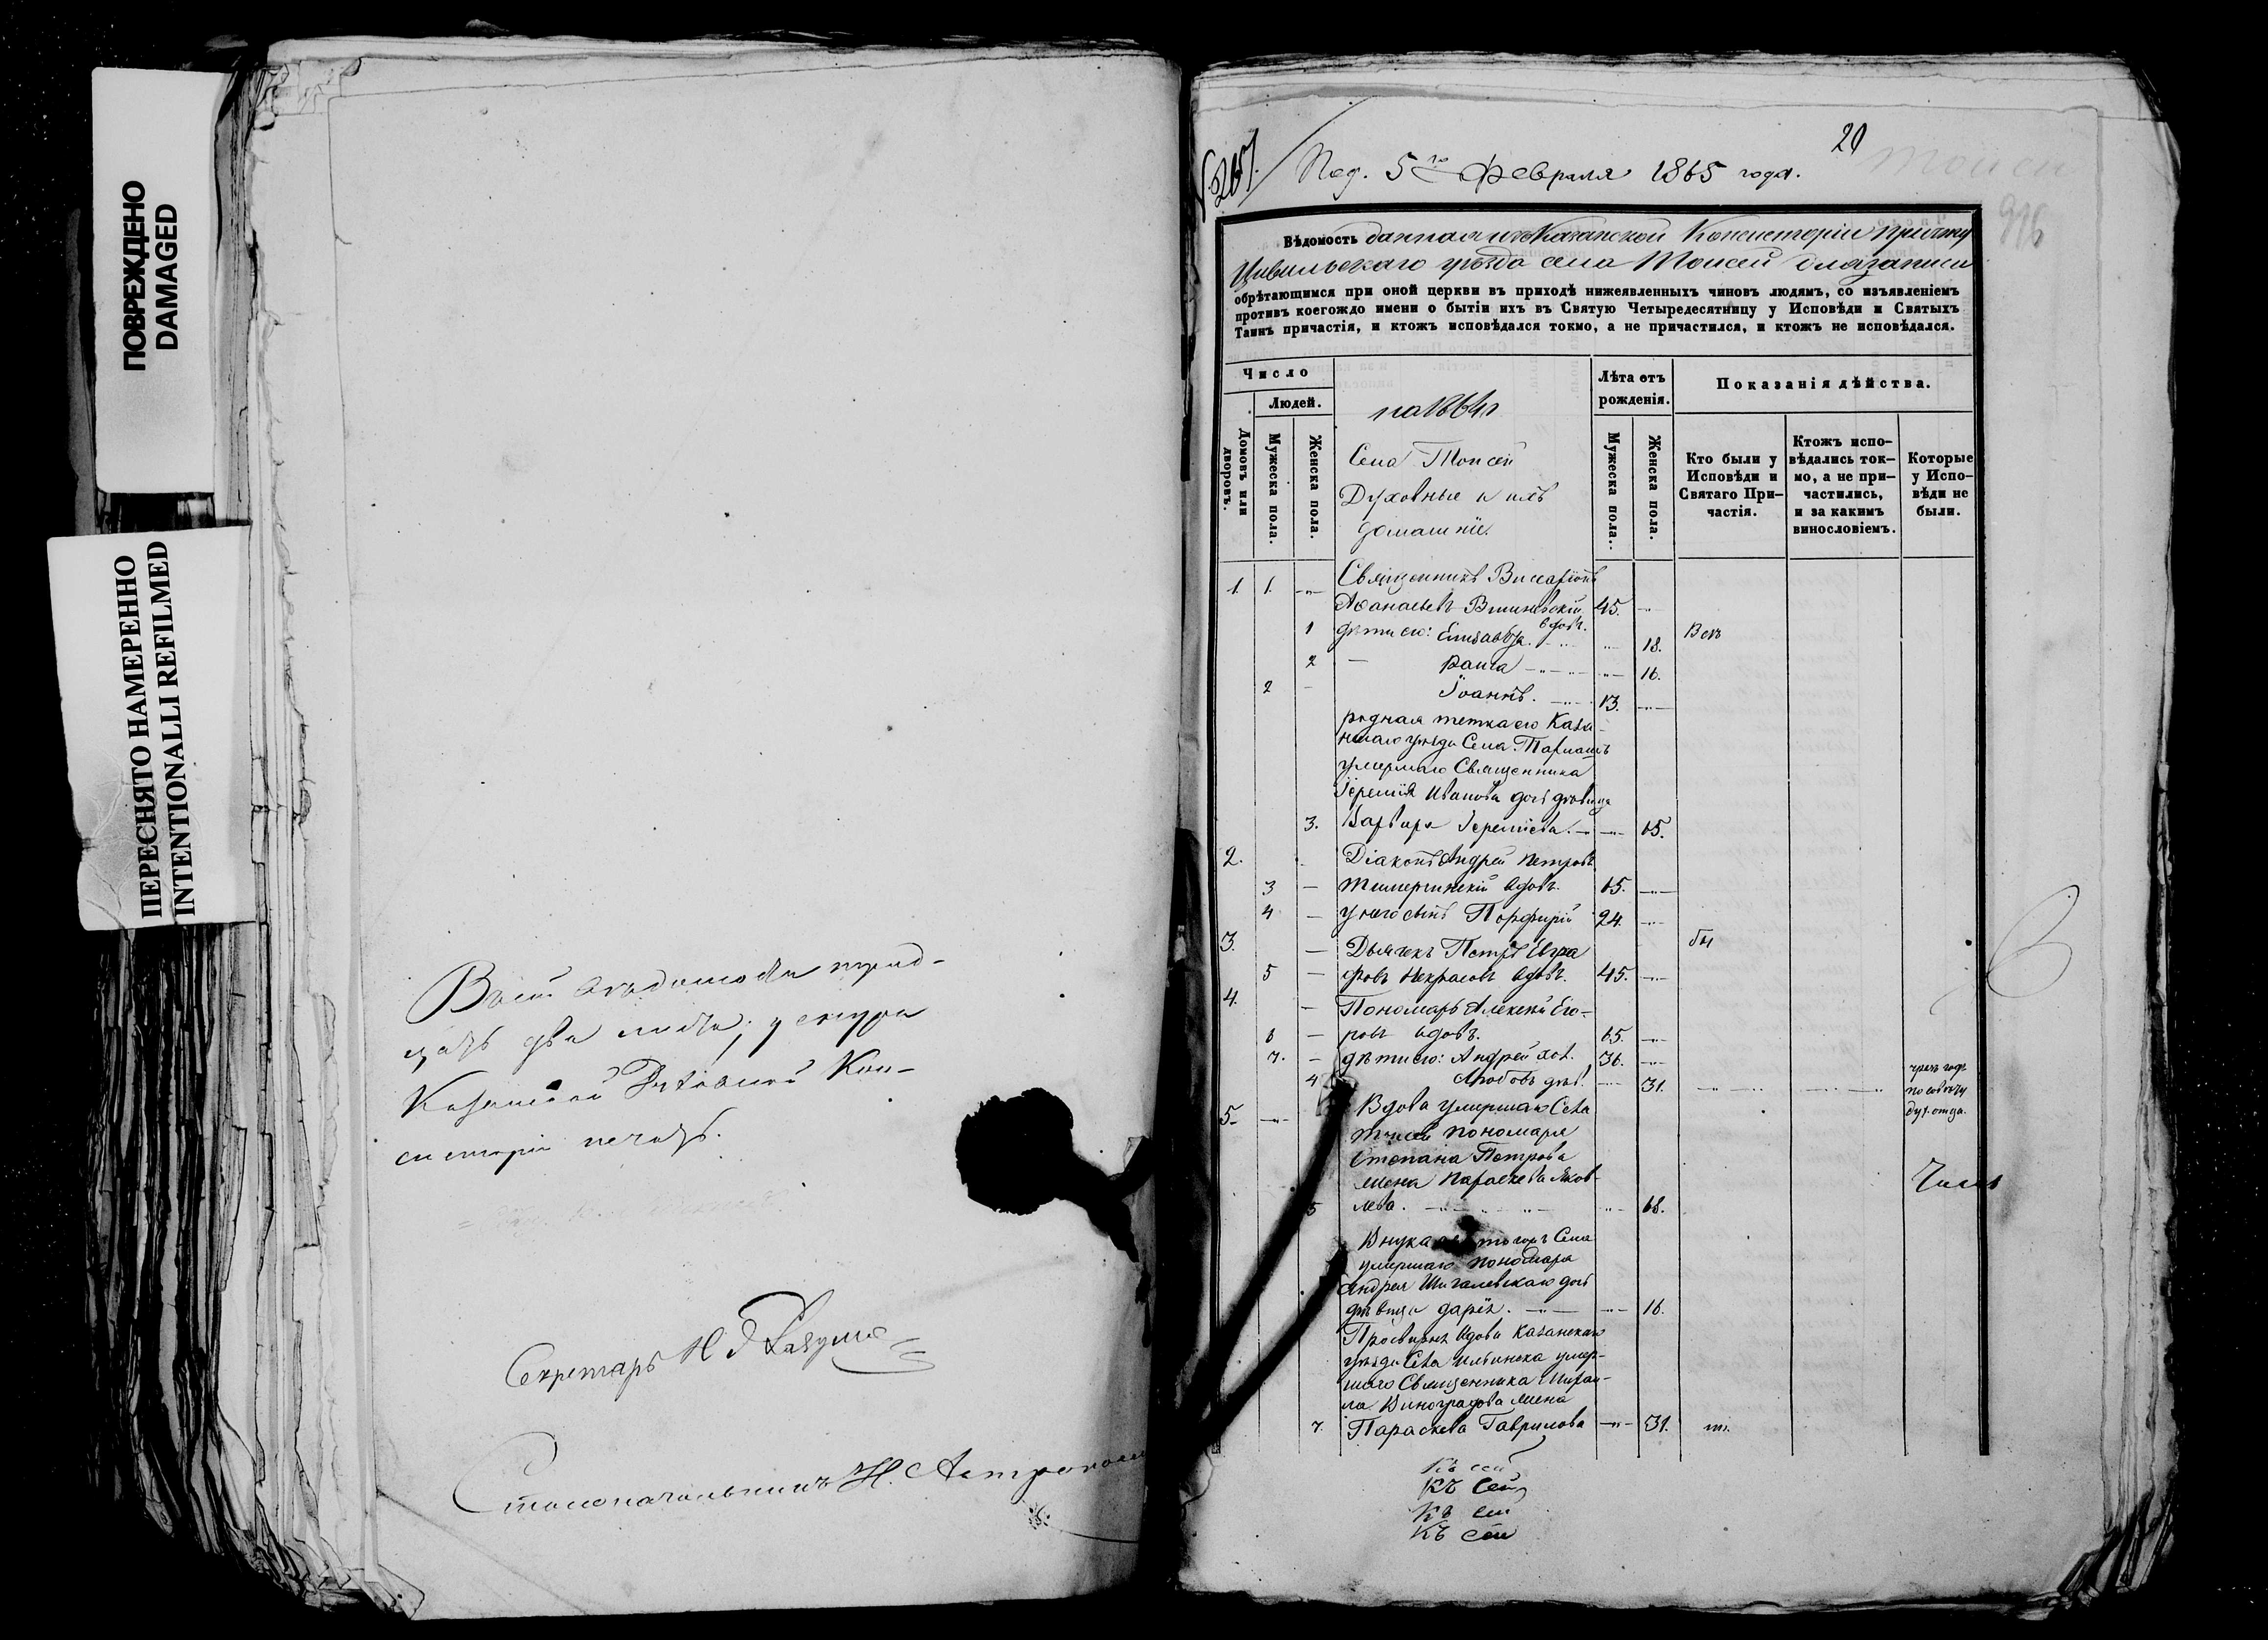 ПОВРЕЖДЕНО
DAMAGED
ПЕРЕСНЯТО НАМЕРЕННО
INTENTIONALLI REFILMED
Всей ведомости трид-
цать два листа; у снура
Казанской Духовной Кон-
систоріи печать.
Секретарь Н
Столоначальникъ Н.
20
№ 267.
Под. 5го Февраля 1865 года.
Вѣдомость данная изъ Казанской Консисторіи причту
Цивильскаго уѣзда села Тойсей для записи
обрѣтающимся при оной церкви въ приходѣ нижеявленныхъ чиновъ людямъ, со изъявленіемъ
противъ коегождо имени о бытіи ихъ въ Святую Четыредесятницу у Исповѣди и Святыхъ
Таинъ причастія, и ктожъ исповѣдался токмо, а не причастился, и ктожъ не исповѣдался.
Число
Людей.
Домовъ или дворовъ.
Мужеска пола.
Женска пола.
на 1864 г.
Села Тойсей
Духовные и ихъ
домашніе.
Лѣта отъ
рожденія.
Мужеска пола.
Женска пола.
Показанія дѣйства.
Кто были у
Исповѣди и
Святаго При-
частія.
Ктожъ испо-
вѣдались ток-
мо, а не при-
частились,
и за какимъ
винословіемъ.
Которые
у Испо-
вѣди не
были.
1. 1. Священникъ Виссаріонъ
Аѳанасьевъ Вишневскій 45.
вдов.
1 дѣти его: Елизавета 18. Всѣ
2 Раиса 16.
2 Іоаннъ. 13.
родная тетка его Каза-
нскаго уѣзда Села
умершаго Священника
Іереміи Иванова дочь дѣвица
3. Варвара Іереміева. 65.
2. Діаконъ Андрей Петровъ
3 вдовъ. 65.
4 у него сынъ Порфирій 24.
3. Дьячекъ Петръ Евгра- бы
5 фовъ Некрасовъ вдовъ. 45.
4. Пономарь Алексѣй Его-
6 ровъ вдовъ. 65.
7. дѣти его: Андрей хол. 36.
4 Любовь дѣв. 31.
чрезъ годъ
по совѣту
дух. отца.
5. Вдова умершаго Села
Тойсей пономаря
Степана Петрова
жена Параскева Яков-
5 лева. 68.
Внука тогожъ Села
умершаго пономаря
Андрея Шигалевскаго дочь
дѣвица Дарія. 16.
Просвирня вдова Казанскаго
уѣзда Села Ильинска умер-
шаго Священника Михаи-
ла Виноградова жена
7. Параскева Гаврилова 51. ли.
Къ сей
Къ сей
Къ сей
Къ сей